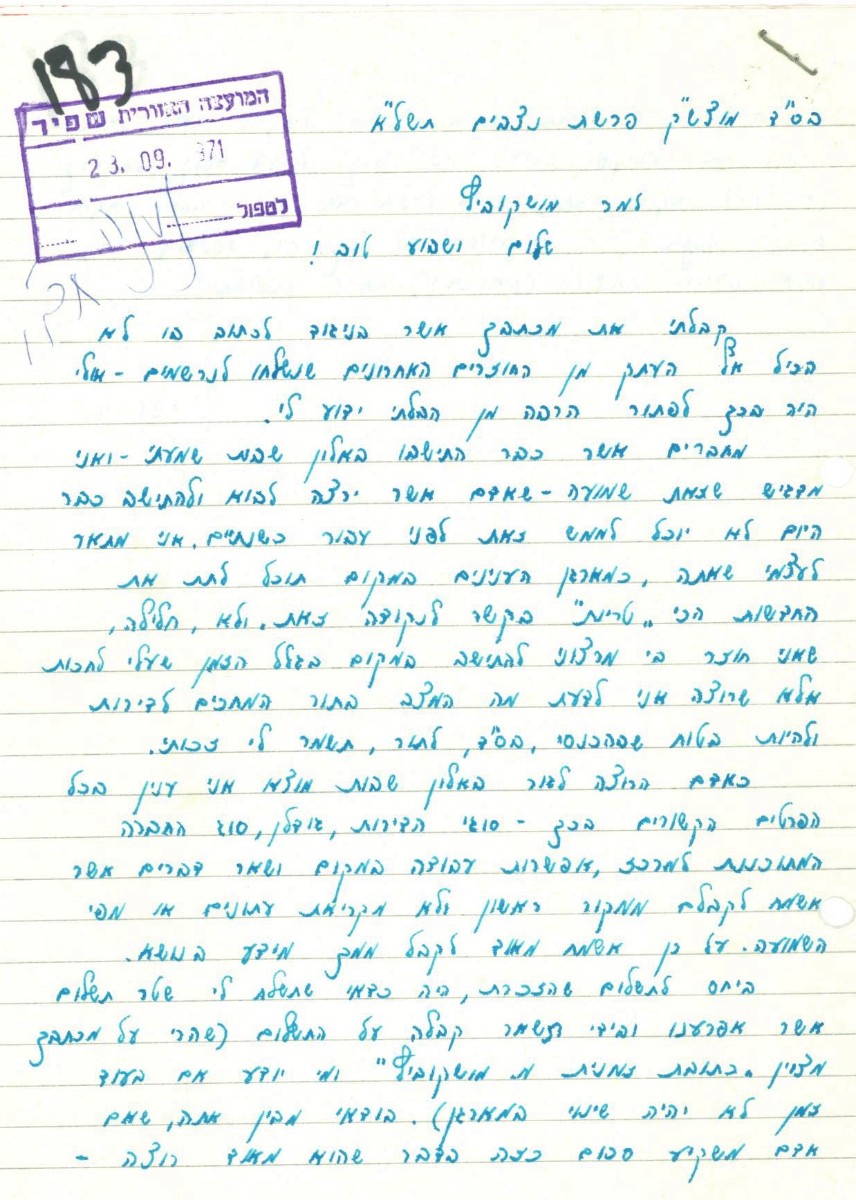 183
המועצה האזורית שפיר
23. 09. 971
לטפול
בס"ד מוצש"ק פרשת נצבים תשל"א
למר מושקוביץ
שלום ושבוע טוב!
קבלתי את מכתבך אשר בניגוד לכתוב בו לא
הכיל את העתק מן החוזרים האחרונים שנשלחו לנרשמים - אולי
היה בכך לפתור הרבה מן הבלתי ידוע לי.
מחברים אשר כבר התישבו באלון שבות שמעתי - ואני
מדגיש שזאת שמועה - שאדם אשר ירצה לבוא ולהתישב כבר
היום לא יוכל לממש זאת לפני עבור כשנתיים. אני מתאר
לעצמי שאתה, כמארגן הענינים במקום תוכל לתת את
החדשות הכי "טריות" בקשר לנקודה זאת. ולא, חלילה,
שאני חוזר בי מרצוני להתישב במקום בגלל הזמן שעלי לחכות
אלא שרוצה אני לדעת מה המצב בתור המחכים לדירות
ולהיות בטוח שבהכנסי, בס"ד, לתור, תשמר לי זכותי.
כאדם הרוצה לגור באלון שבות מוצא אני ענין בכל
הפרטים הקשורים בכך - סוגי הדירות, גודלן, סוג החברה
המתוכננת למרכז, אפשרות עבודה במקום ושאר דברים אשר
אשמח לקבלם ממקור ראשון ולא מקריאת עתונים או מפי
השמועה. על כן אשמח מאוד לקבל ממך מידע בנושא.
ביחס לתשלום שהזכרת, היה כדאי שתשלח לי שטר תשלום
אשר אפרענו ובידי תשאר קבלה על התשלום (שהרי על מכתבך
מצוין "כתובת זמנית מ. מושקוביץ" ומי יודע אם בעוד
זמן לא יהיה שינוי במארגן). בודאי מבין אתה, שאם
אדם משקיע סכום כזה בדבר שהוא מאוד רוצה -